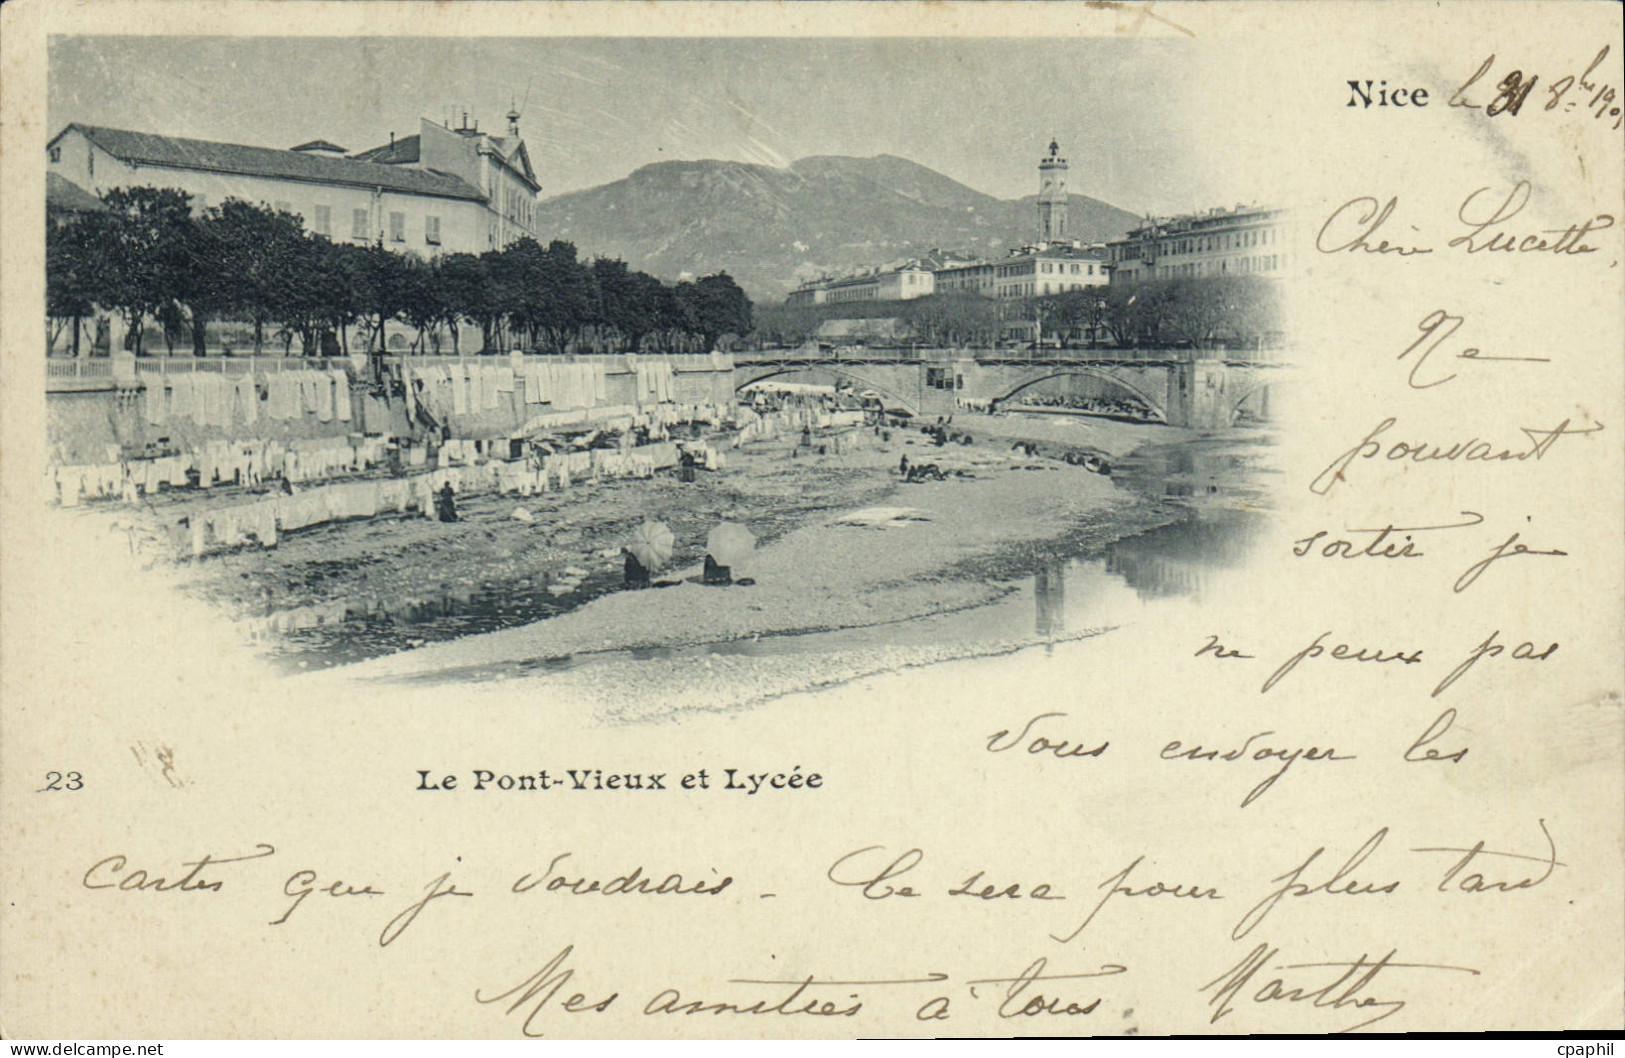 Nice le 31 8bre 190
Chère Lucette,
Ne
pouvant
sortir je
ne peux pas
vous envoyer les
23
Le Pont-Vieux et Lycée
cartes que je voudrais - Ce sera pour plus tard.
Mes amitiés à tous. Marthe
delcampe.net
cpaphil